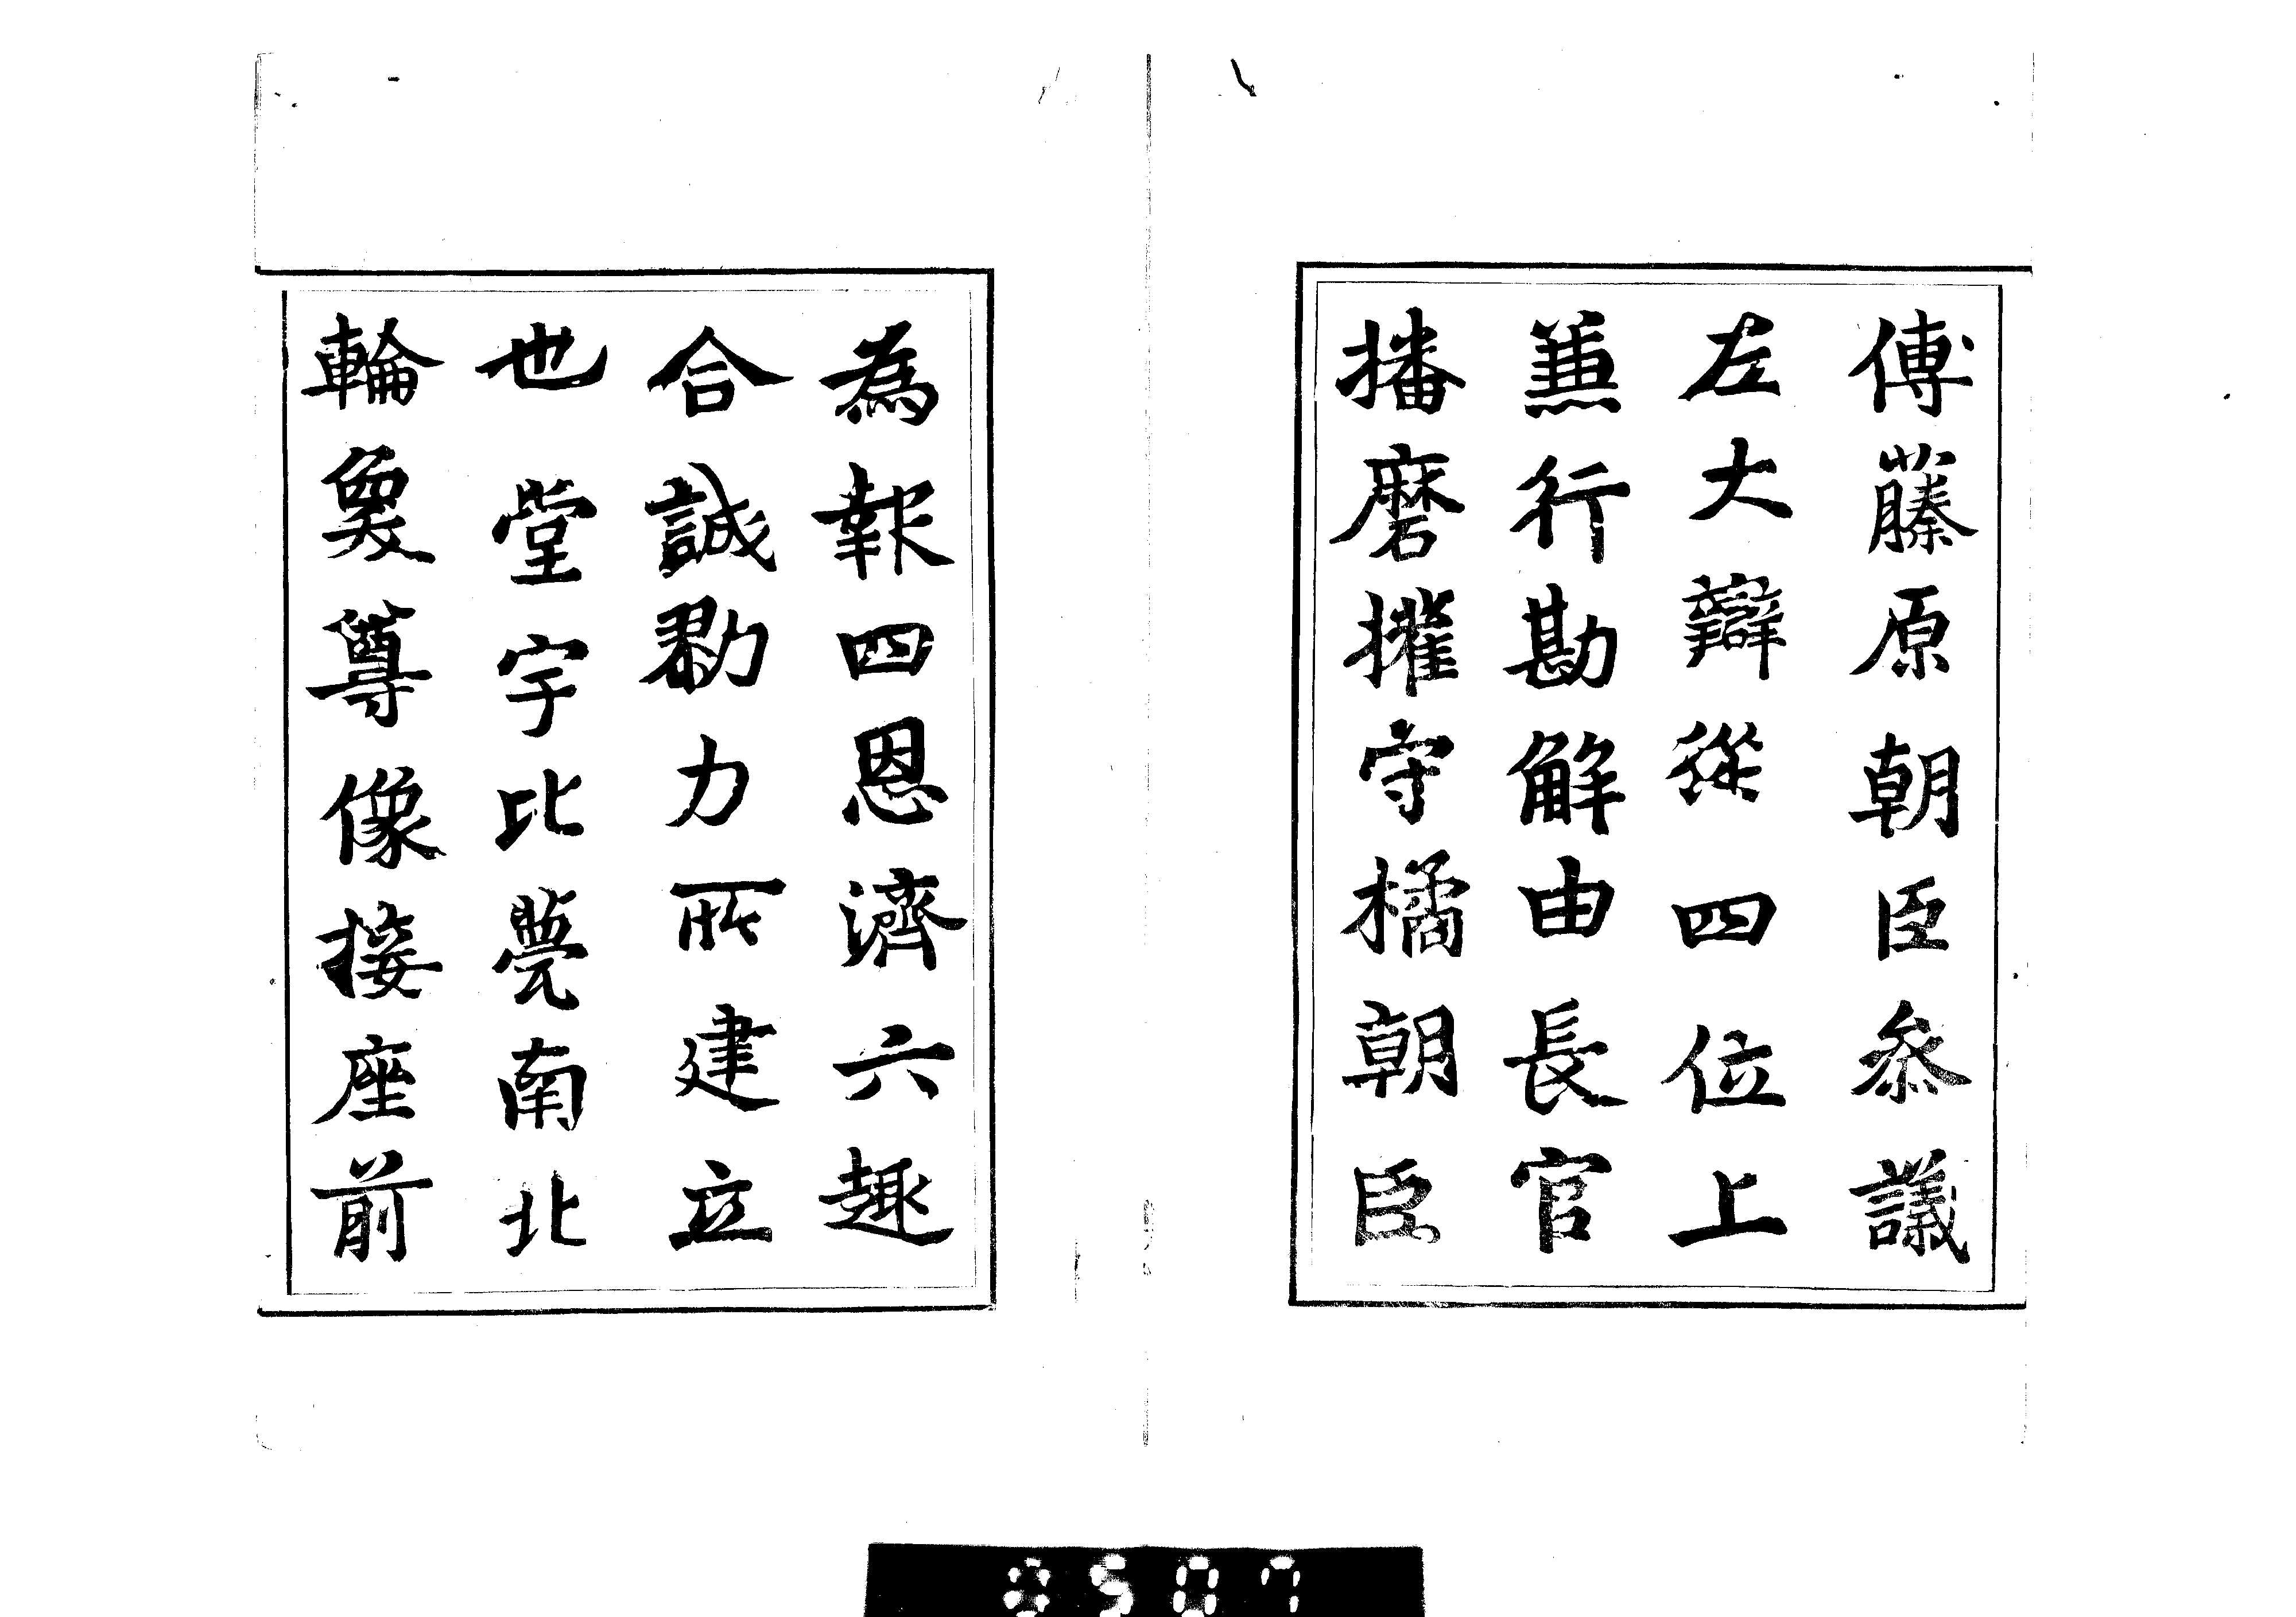 傅藤原朝臣叅議
左大辯從四位上
兼行勘解由長官
播磨權守橘朝臣
為報四恩濟六趣
合誠勠力所建立
也堂宇比甍南北
輪奐尊像接座前